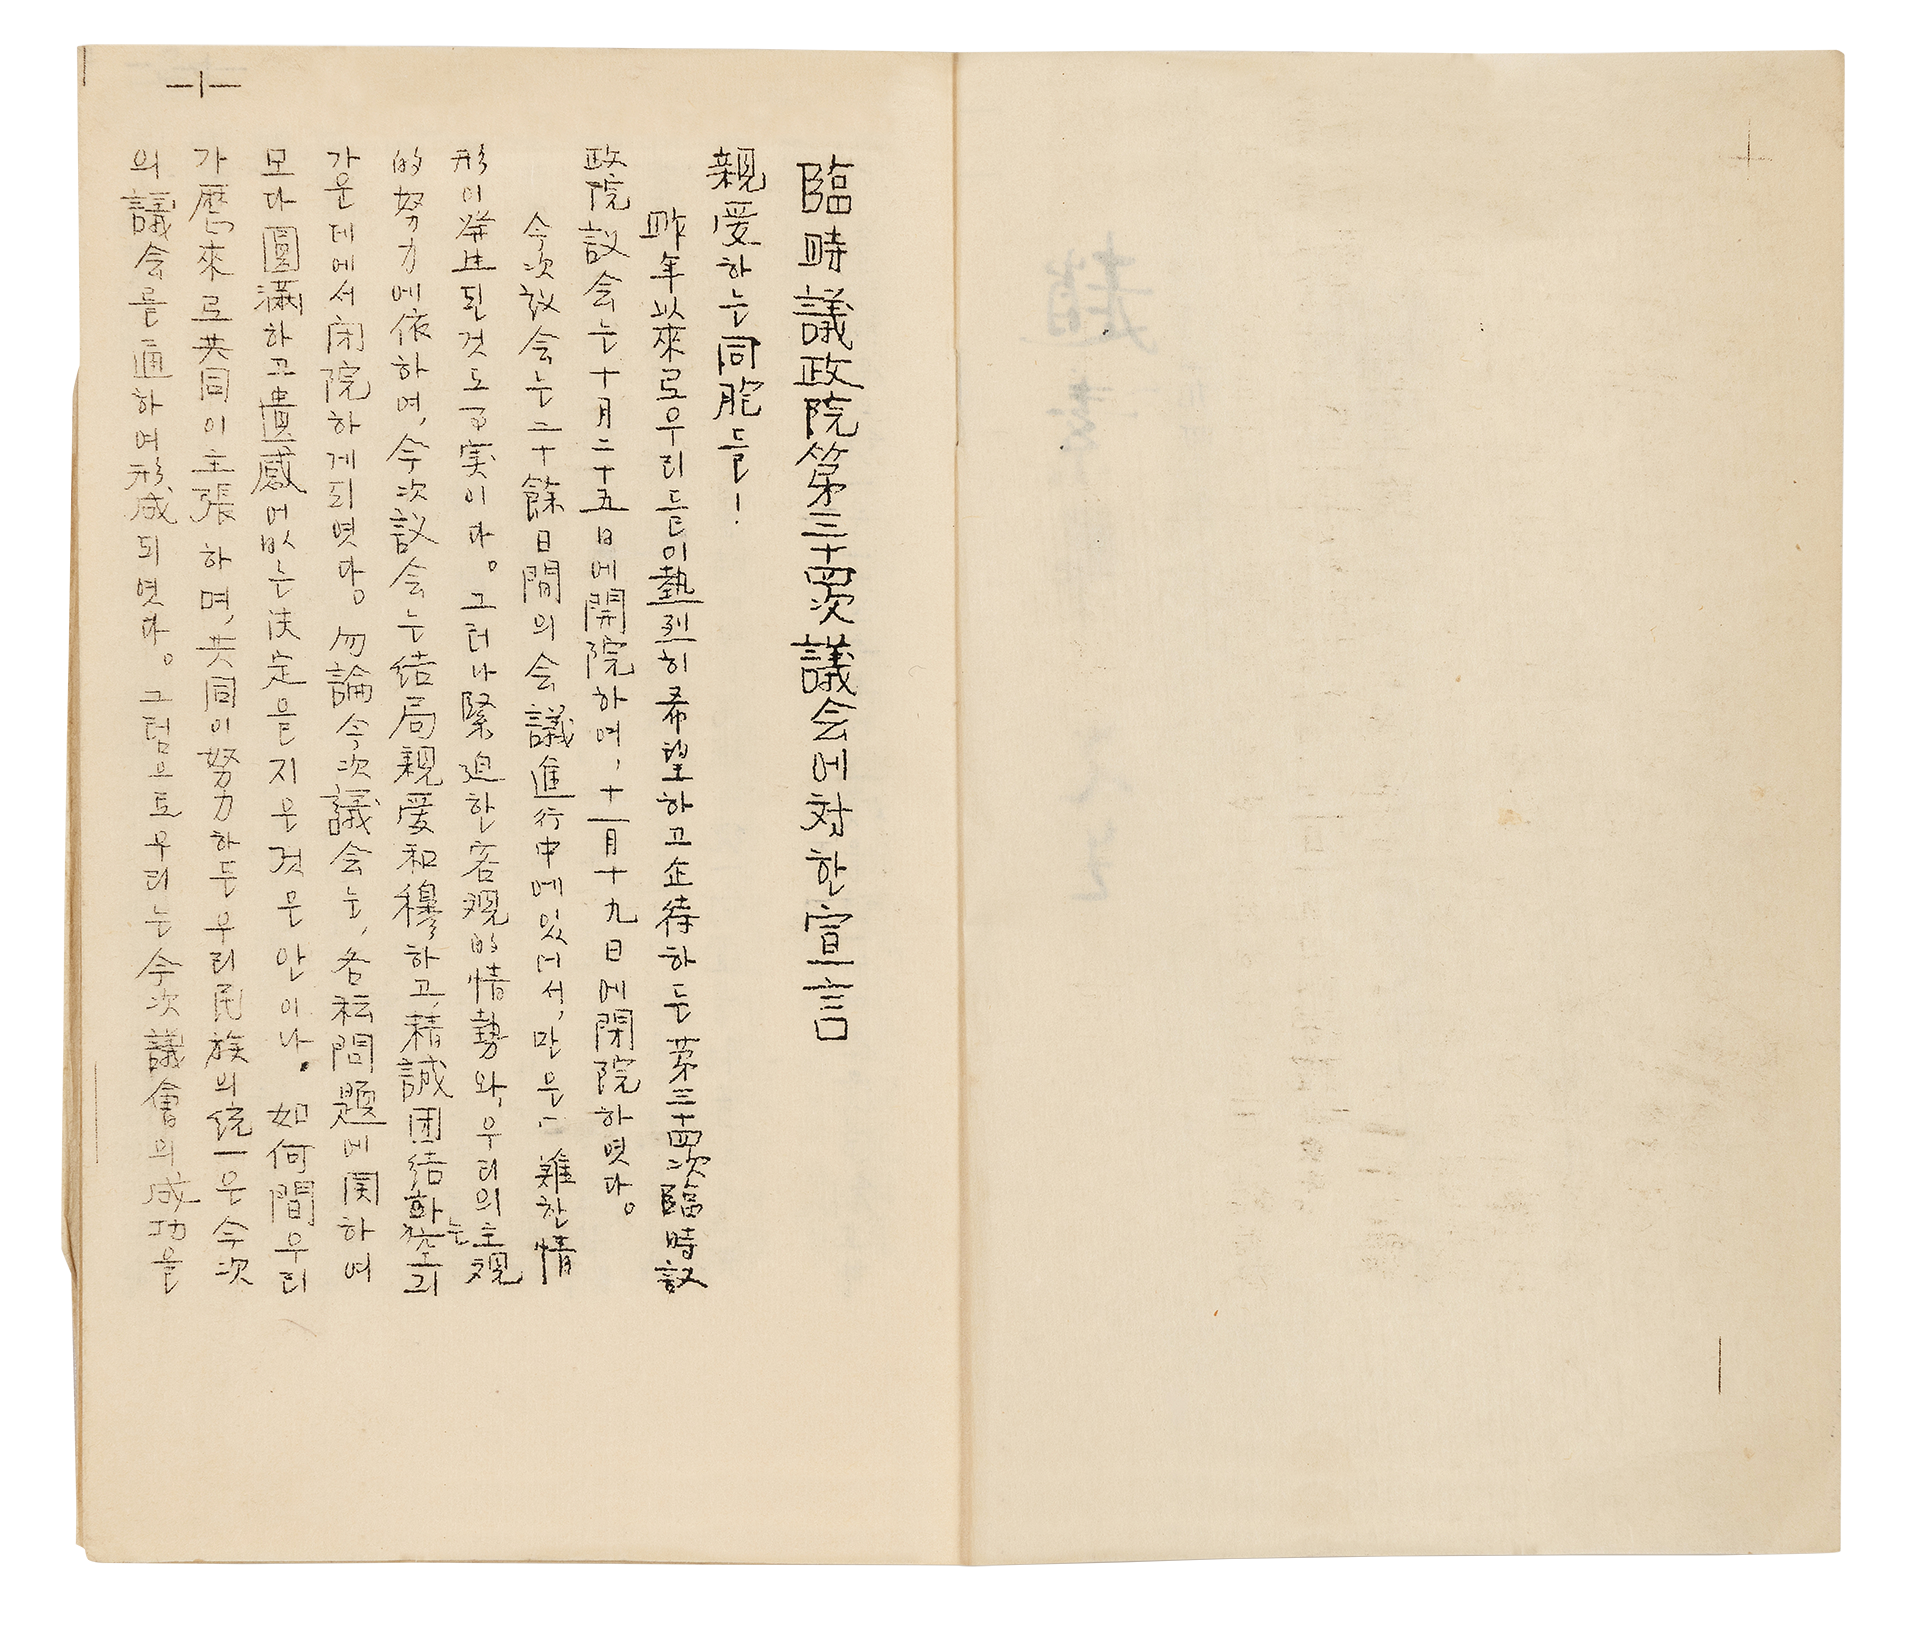 臨時議政院第三十四次議会에対한宣言
親愛하는同胞들!
昨年以來로우리들이熱烈히希望하고企待하든第三十四次臨時議
政院議会는十月二十五日에開院하여, 十一月十九日에閉院하엿다。
今次議会는二十餘日間의会議進行中에있어서, 만은 難한情
形이発生된것도事実이다。그러나緊迫한客观的情勢와, 우리의主观
的努力에依하여, 今次議会는结局親爱和穆하고, 精誠团结하는空긔
가운데에서闭院하게되엿다。勿論今次議会는, 各種問題에関하여
모다圓滿하고遺感어없는決定을지은것은안이나. 如何間우리
가歷來로共同이主張하며, 共同이努力하든우리民族의统一은今次
의議会를通하여形成되엿다。그럼으로우리는今次議會의成功을